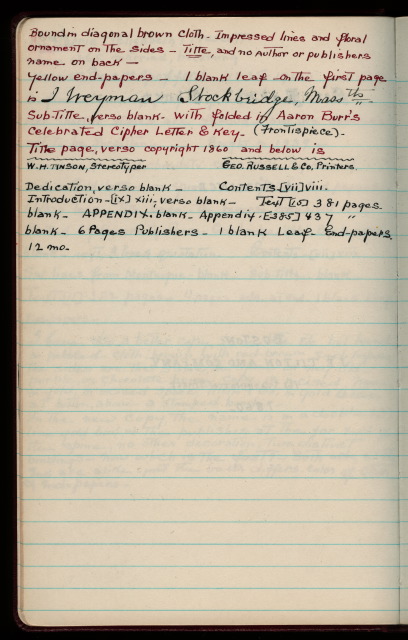 Bound in diagonal brown cloth. Impressed lines and floral
ornament on the sides - Title, and no author or publishers
name on back -
Yellow end-papers - 1 blank leaf - on the first page
is J Weyman Stockbridge, Mass ths
Sub-Title, verso blank - with folded in Aaron Burr's
Celebrated Cipher Letter & Key - (Frontispiece) -
Title page, verso copyright 1860 and below is
W. H. TINSON, Stereotyper GEO. RUSSELL & Co, Printers.
Dedication, verso blank - Contents [vii] viii.
Introduction - [ix] xiii, verso blank - Text [15] 381 pages.
blank - APPENDIX. blank - Appendix. [385] 437 "
blank - 6 Pages Publishers - 1 blank Leaf - End-papers.
12 mo.